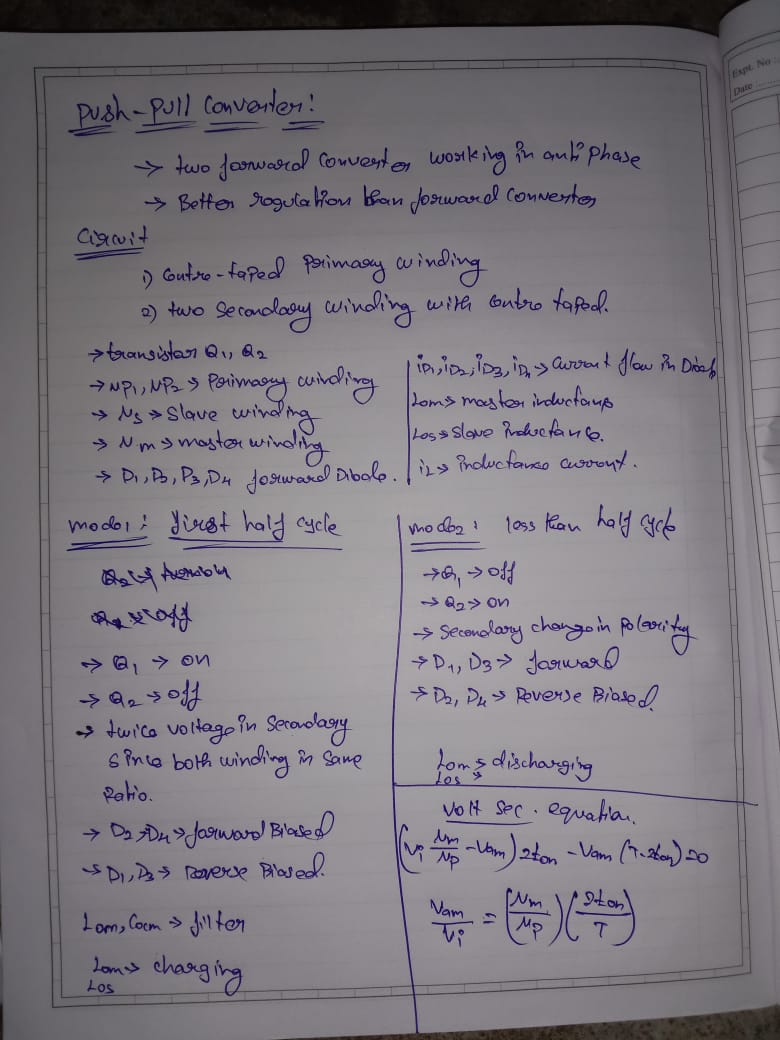 Expt. No :
Date :
Push-Pull Converter:
→ two forward converter working in anti phase
→ Better regulation than forward converter
Circuit
1) Centre-taped primary winding
2) two secondary winding with centre taped.
→ transistor Q1, Q2
→ NP1, NP2 → Primary winding
→ Ns → Slave winding
→ N.m → master winding
→ D1, D2, D3, D4 forward Diode.
iD1, iD2, iD3, iD4 → Current flow in Diode
Lom → master inductance
Los → Slave inductance.
iL → inductance current.
mode1: first half cycle
Q2 →
→ off
→ Q1 → on
→ Q2 → off
→ twice voltage in secondary
since both winding in same
Ratio.
→ D2, D4 → forward Biased
→ D1, D3 → Reverse Biased.
Lom, Com → filter
Lom → charging
Los
mode2: less than half cycle
→ Q1 → off
→ Q2 → on
→ Secondary change in polarity
→ D1, D3 → forward
→ D2, D4 → Reverse Biased.
Lom → discharging
Los →
Volt sec. equation.
(Vi Nm/Np - Vam) 2ton - Vam (T-2ton) = 0
Vam/Vi = (Nm/Np) (2ton/T)